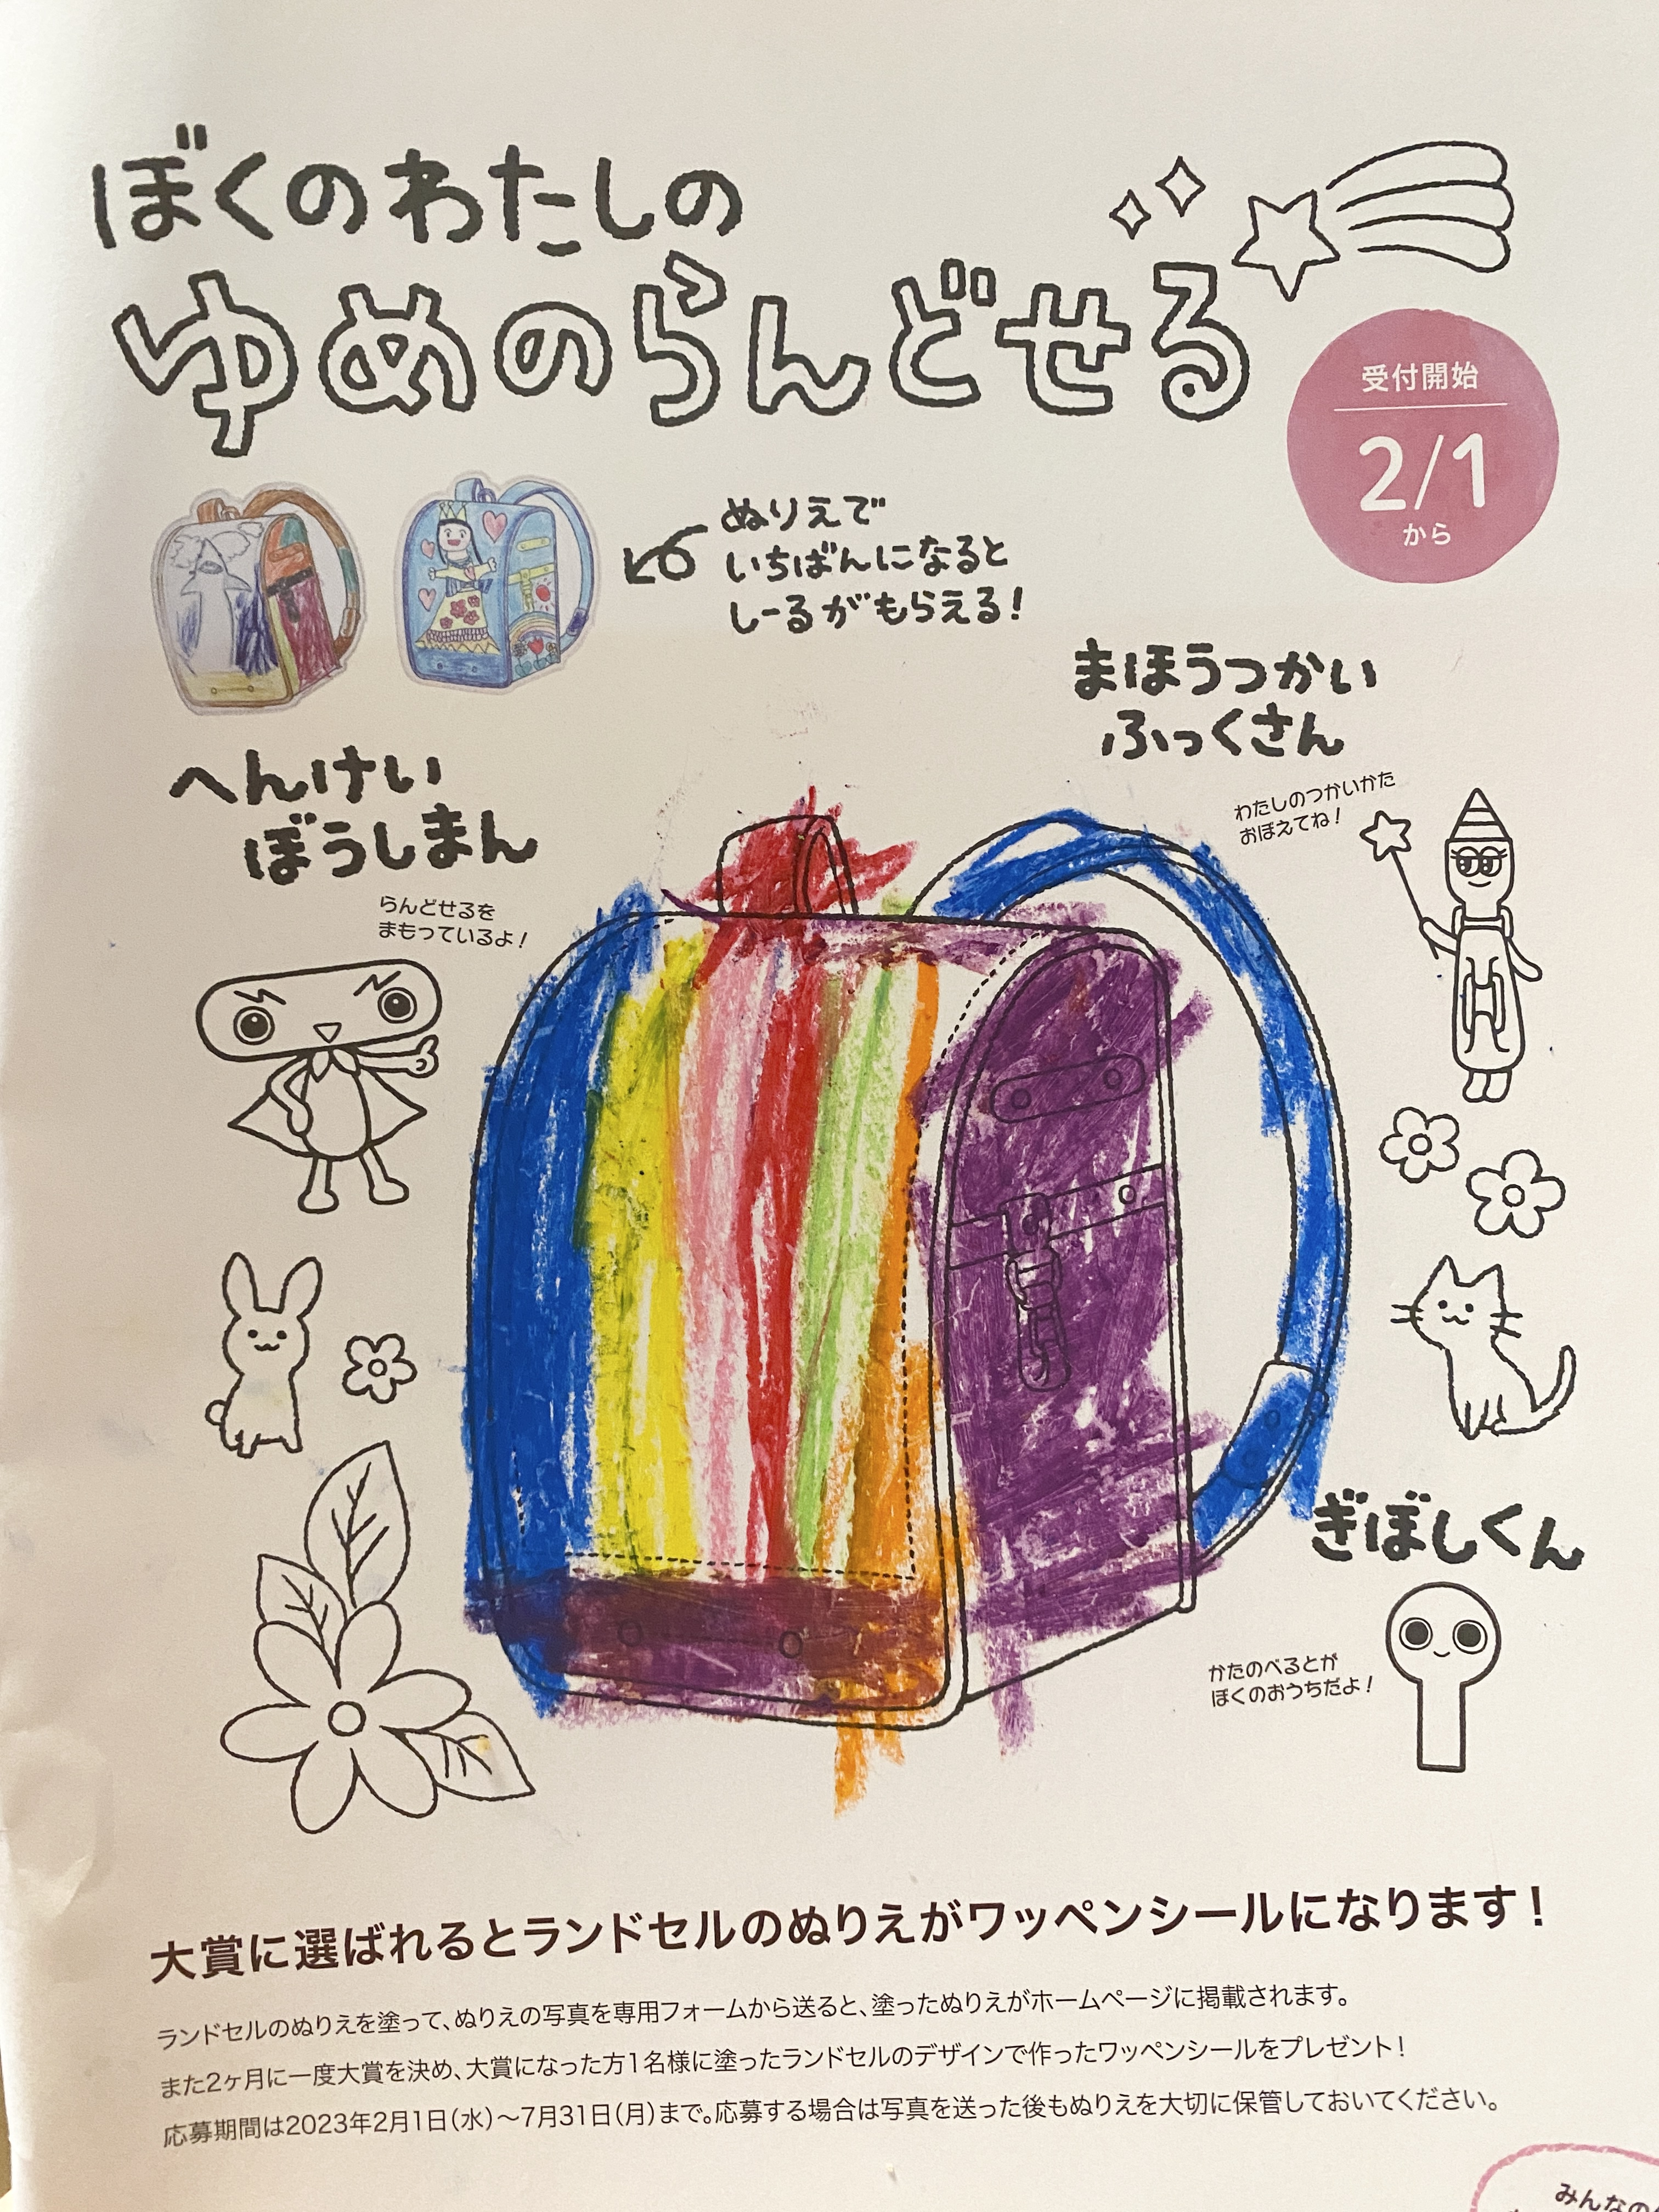 ぼくのわたしの
ゆめのらんどせる
受付開始
2/1
から
ぬりえで
いちばんになると
しーるがもらえる!
まほうつかい
ふっくさん
わたしのつかいかた
おぼえてね!
へんけい
ぼうしまん
らんどせるを
まもっているよ!
ぎぼしくん
かたのべるとが
ぼくのおうちだよ!
大賞に選ばれるとランドセルのぬりえがワッペンシールになります!
ランドセルのぬりえを塗って、ぬりえの写真を専用フォームから送ると、塗ったぬりえがホームページに掲載されます。
また2ヶ月に一度大賞を決め、大賞になった方1名様に塗ったランドセルのデザインで作ったワッペンシールをプレゼント!
応募期間は2023年2月1日(水)〜7月31日(月)まで。応募する場合は写真を送った後もぬりえを大切に保管しておいてください。
みんなの